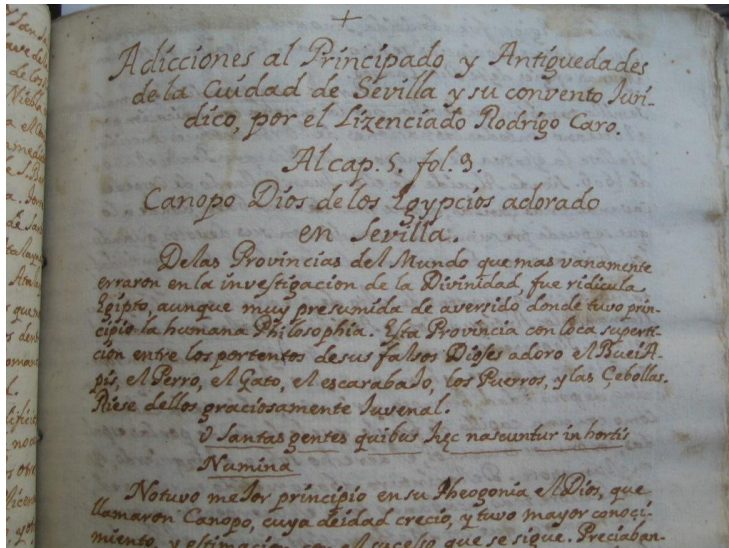 Adicciones al Principado y Antiguedades
de la Ciudad de Sevilla y su convento Juri-
dico, por el Lizenciado Rodrigo Caro.
Al cap. 5. fol. 9.
Canopo Dios de los Egypcios adorado
en Sevilla.
De las Provincias del Mundo que mas vanamente
erraron en la investigacion de la Divinidad, fue ridicula
Egipto, aunque muy presumida de aversido donde tuvo prin-
cipio la humana Philosophia. Esta Provincia con loca superti-
cion entre los portentos de sus falsos Dioses adoro el Buei A-
pis, el Perro, el Gato, el escarabajo, los Puerros, y las Çebollas.
Riese dellos graciosamente Iuvenal.
O Santas gentes quibus hęc nascuntur in hortis
Numina
No tuvo mejor principio en su Theogonia el Dios, que
llamaron Canopo, cuya deidad crecio, y tuvo mayor conoçi-
miento, y estimacion con el sucesso que se sigue. Preciaban-